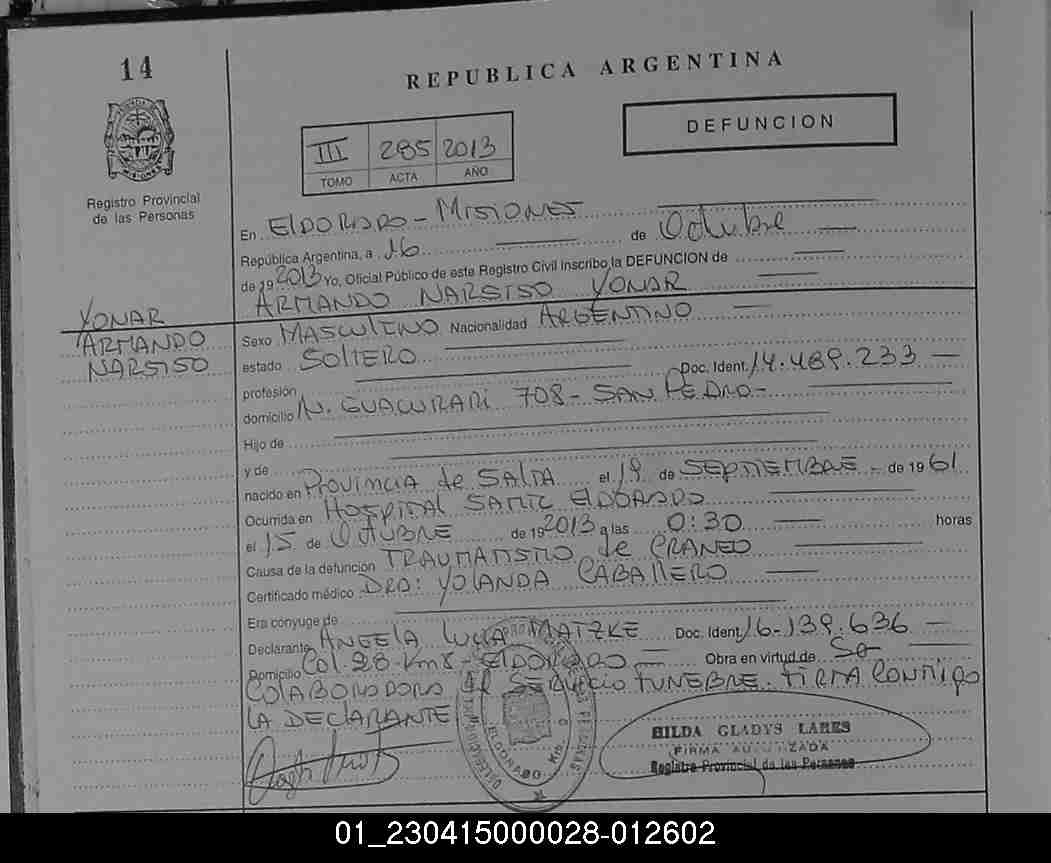 14
REPUBLICA ARGENTINA
DEFUNCION
III 285 2013
TOMO ACTA AÑO
Registro Provincial
de las Personas
En ELDORADO - MISIONES
República Argentina, a 16 de Octubre
de 19 2013 Yo, Oficial Público de este Registro Civil Inscribo la DEFUNCION de
ARMANDO NARSISO YONAR
YONAR
ARMANDO
NARSISO
Sexo MASCULINO Nacionalidad ARGENTINO
estado SOLTERO Doc. Ident. 14.489.233
profesión
domicilio GUACURARI 708 - SAN PEDRO -
Hijo de
y de
nacido en PROVINCIA de SALTA el 19 de SEPTIEMBRE de 1961
Ocurrida en HOSPITAL SAMIC ELDORADO
el 15 de OCTUBRE de 19 2013 a las 0:30 horas
Causa de la defunción TRAUMATISMO de CRANEO
Certificado médico DRA: YOLANDA CABALLERO
Era conyuge de
Declarante ANGELA MATZKE Doc. Ident. 16.139.636
Domicilio Col. 28 Km 8 - ELDORADO Obra en virtud de Se
SERVICIO FUNEBRE. FIRMA CONMIGO
LA DECLARANTE
HILDA GLADYS LARES
FIRMA AUTORIZADA
Registro Provincial de las Personas
01_230415000028-012602